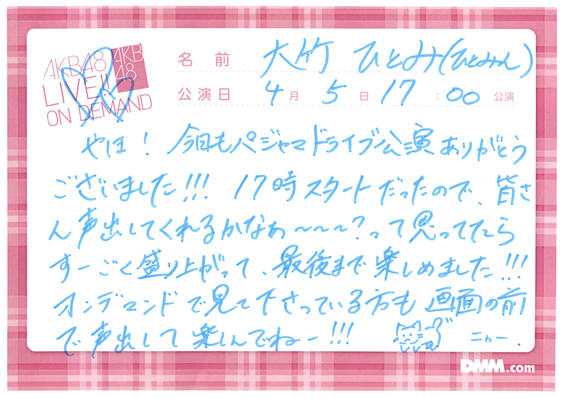 AKB48
LIVE!!
ON DEMAND
AKB
48
名前 大竹 ひとみ(ひとみん)
公演日 4月5日17:00公演
やほ! 今日もパジャマドライブ公演ありがとう
ございました!!! 17時スタートだったので、皆さ
ん声出してくれるかなぁ~~~?って思ってたら
すーごく盛り上がって、最後まで楽しめました!!!
オンデマンドで見て下さっている方も画面の前
で声出して楽しんでねー!!! ニャー.
DMM.com